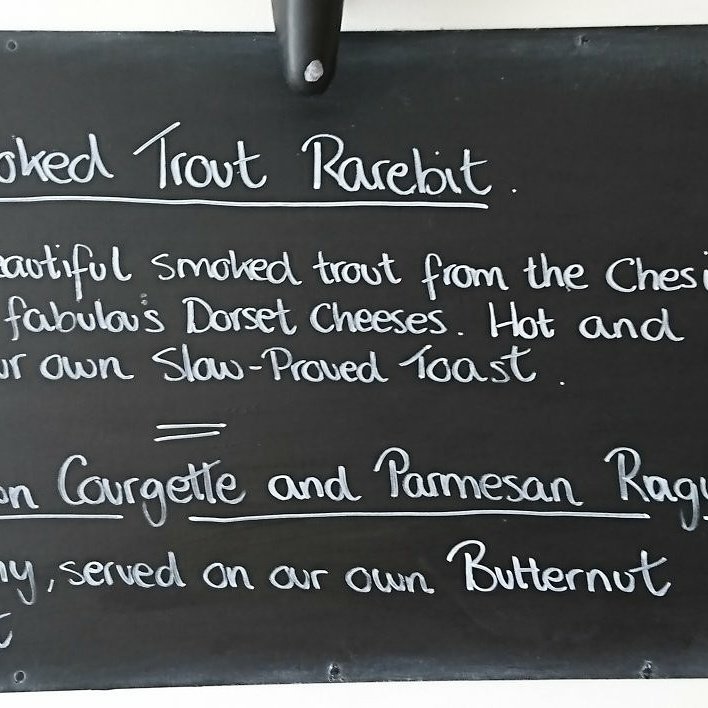 oked Trout Rarebit.
eautiful smoked trout from the Chesi
fabulous Dorset Cheeses. Hot and
ur own Slow-Proved Toast.
on Courgette and Parmesan Ragu
ny, served on our own Butternut
t